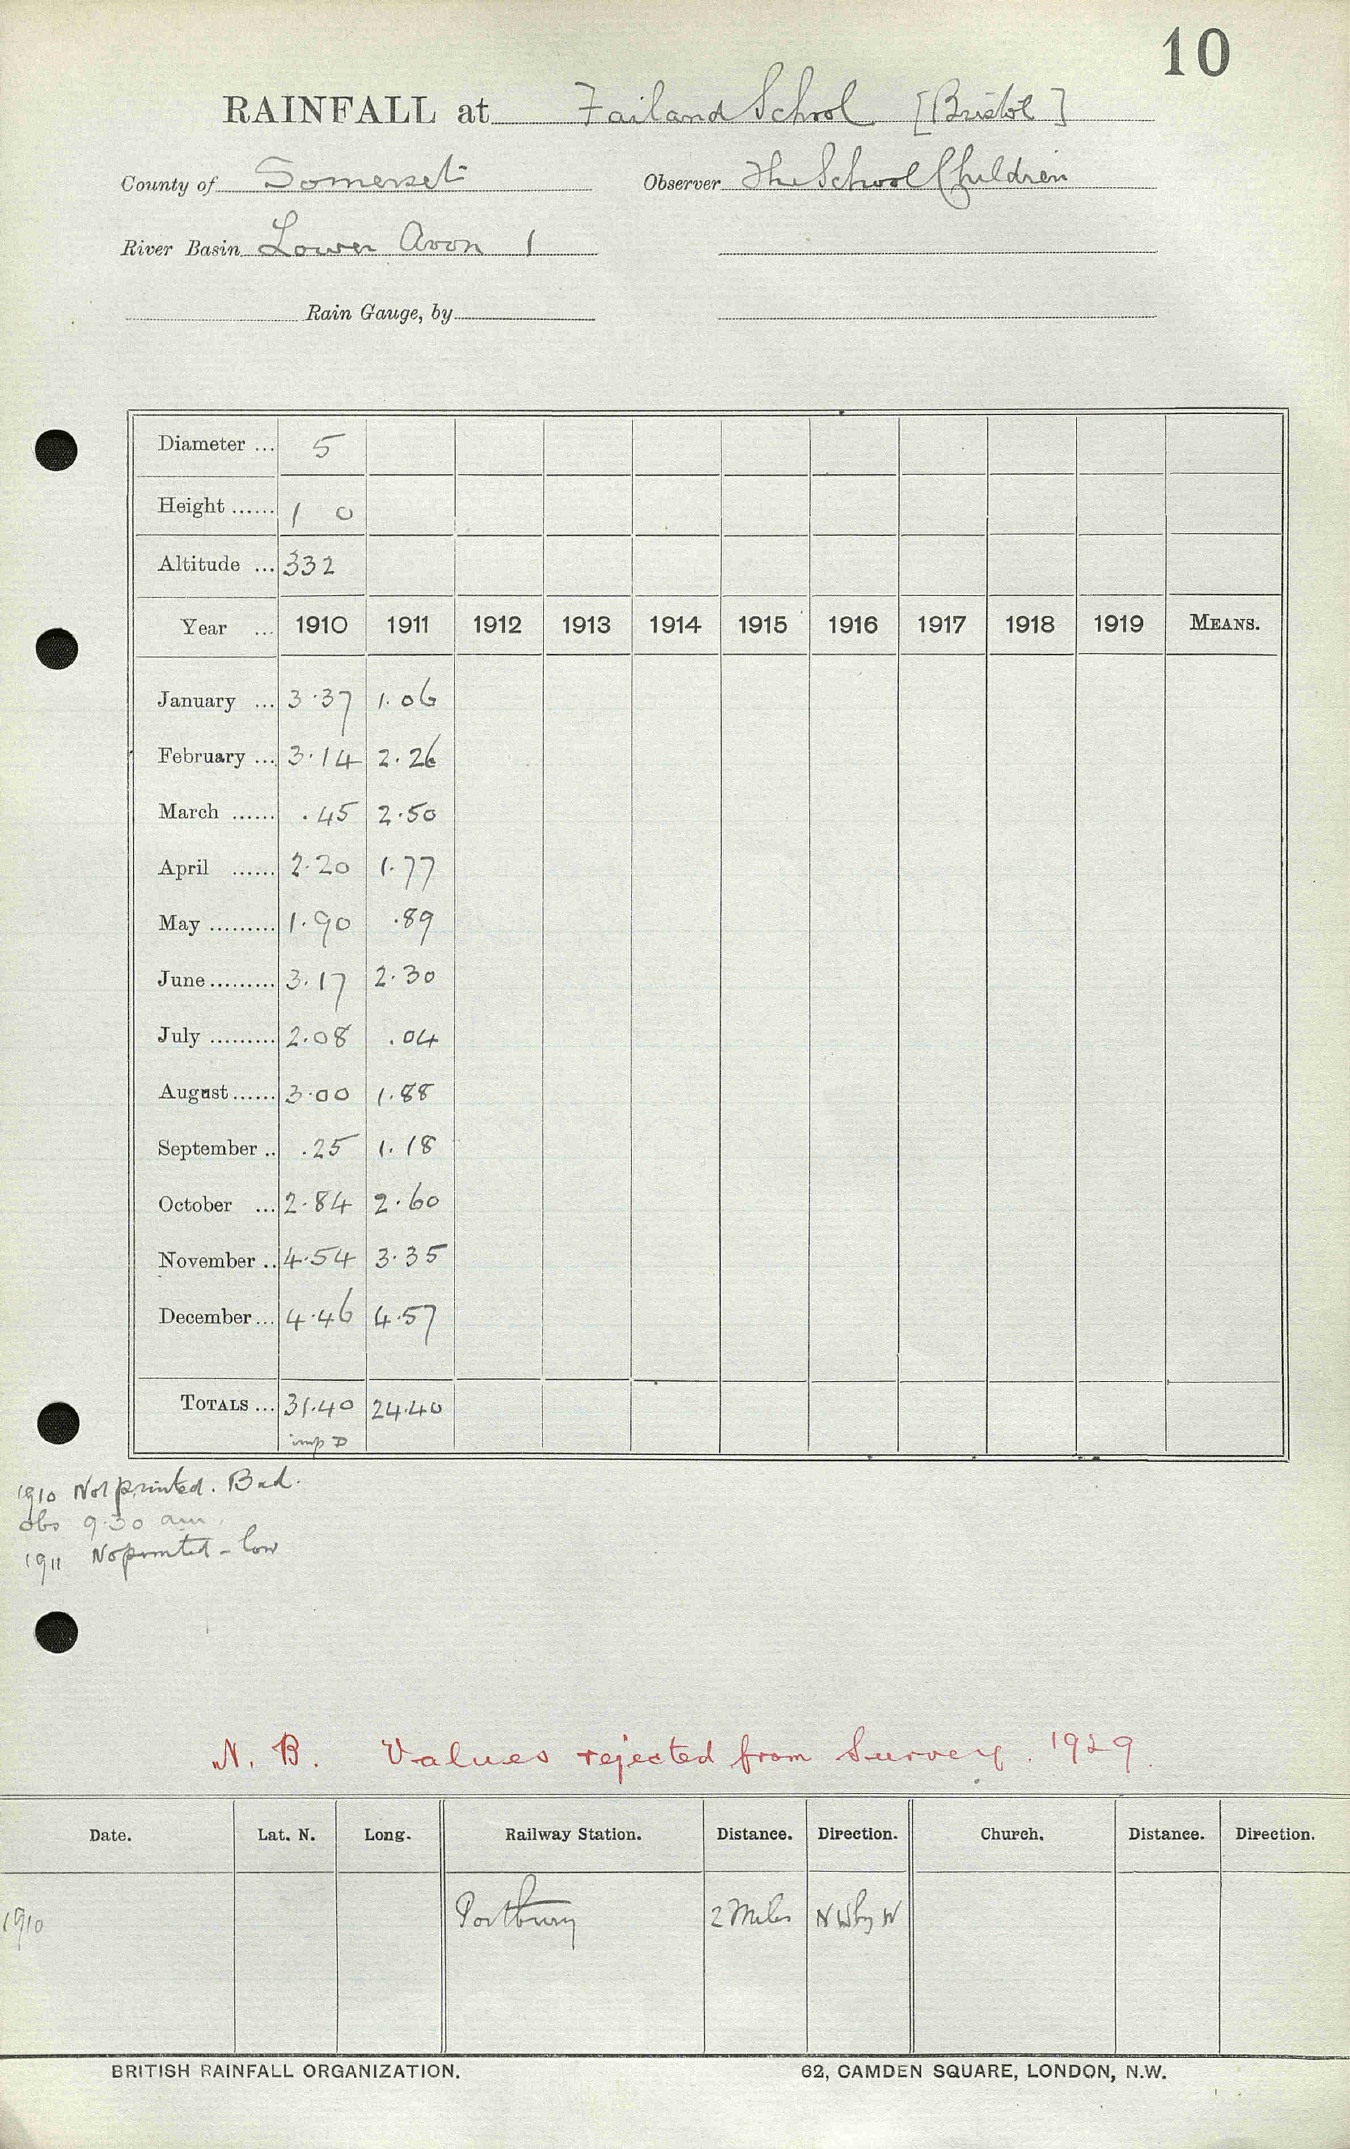 10
RAINFALL at Failand School [Bristol]
County of Somerset Observer The School Children
River Basin Lower Avon 1
Rain Gauge, by
Diameter ... 5
Height ...... 1 0
Altitude ... 332
Year ... 1910 1911 1912 1913 1914 1915 1916 1917 1918 1919 MEANS.
January ... 3.37 1.06
February ... 3.14 2.26
March ...... .45 2.50
April ...... 2.20 1.77
May ......... 1.90 .89
June ......... 3.17 2.30
July ......... 2.08 .04
August ...... 3.00 1.88
September .. .25 1.18
October ... 2.84 2.60
November .. 4.54 3.35
December ... 4.46 4.57
TOTALS ... 31.40 24.40
imp D
1910 Not printed. Bad.
obs 9.30 am.
1911 No printed - low
N.B. Values rejected from Survey. 1929.
Date. Lat. N. Long. Railway Station. Distance. Direction. Church. Distance. Direction.
1910 Portbury 2 Miles NW by W
BRITISH RAINFALL ORGANIZATION. 62, CAMDEN SQUARE, LONDON, N.W.